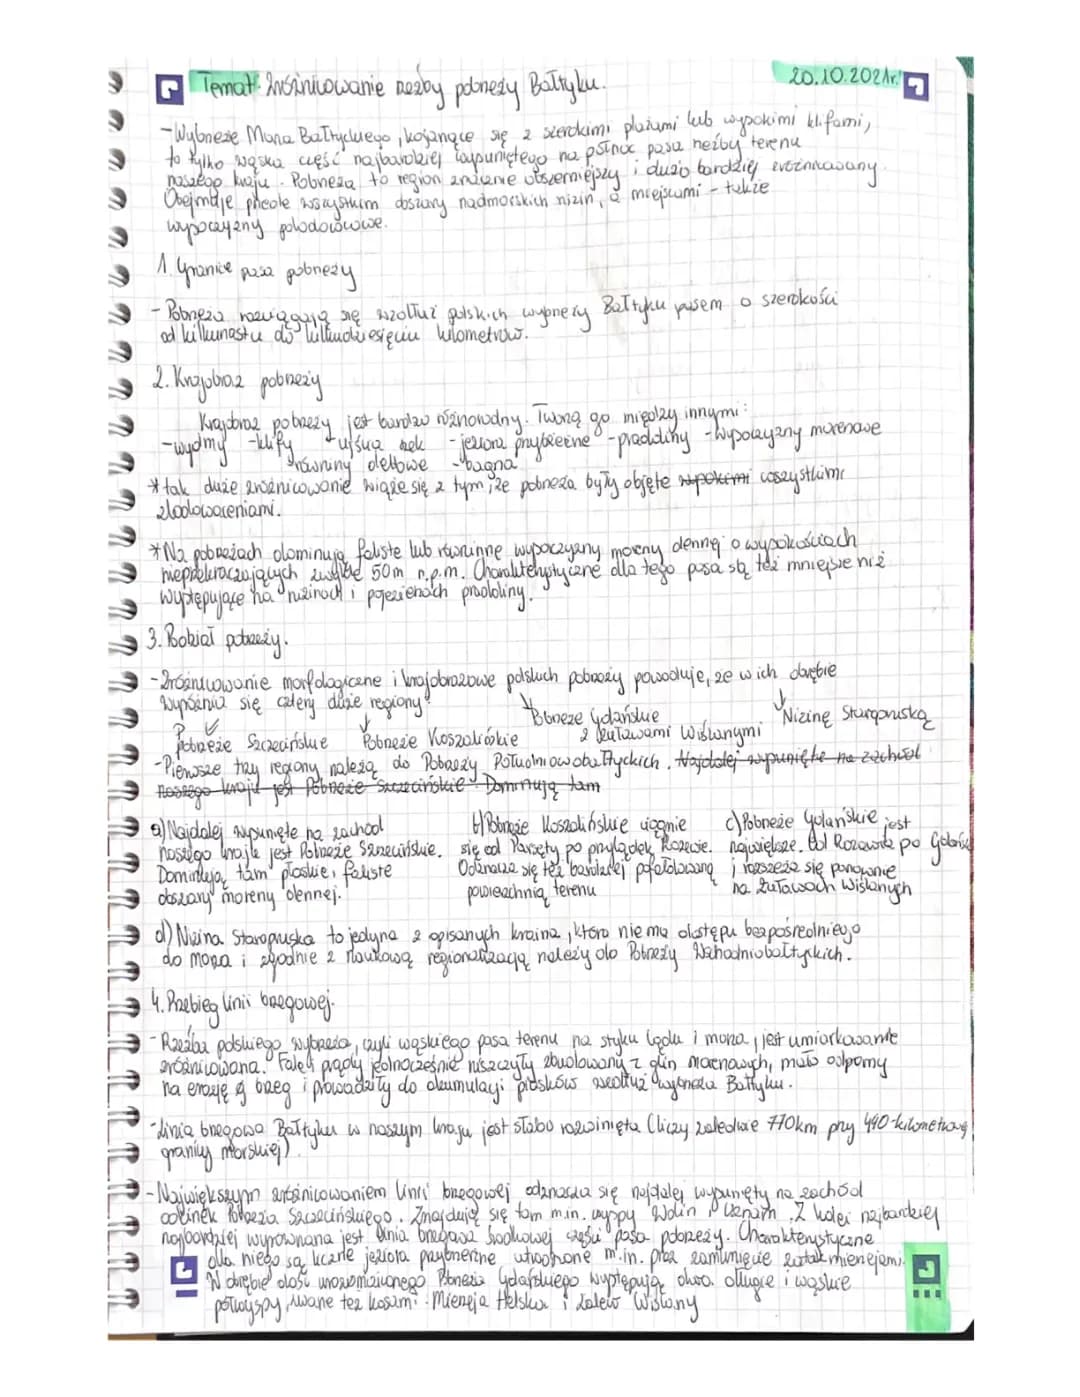 Temat: Zróżnicowanie rzeźby pobrzeży Bałtyku.
20.10.2021r.
-Wybrzeże Morza Bałtyckiego, kojarzące się z szerokimi plażami lub wysokimi klifami,
to tylko wąska część najbardziej wysuniętego na północ pasa rzeźby terenu
naszego kraju. Pobrzeża to region znacznie obszerniejszy i dużo bardziej zróżnicowany.
Obejmuje przede wszystkim obszary nadmorskich nizin, a miejscami - także
wysoczyzny polodowcowe.
1. Granice pasa pobrzeży
- Pobrzeża rozciągają się wzdłuż polskich wybrzeży Bałtyku pasem o szerokości
od kilkunastu do kilkudziesięciu kilometrów.
2. Krajobraz pobrzeży
Krajobraz pobrzeży jest bardzo różnorodny. Tworzą go między innymi:
-wydmy -klify -ujścia rzek -jeziora przybrzeżne -pradoliny -wysoczyzny morenowe
-równiny deltowe -bagna
*tak duże zróżnicowanie wiąże się z tym, że pobrzeża były objęte wszystkimi
zlodowaceniami.
*Na pobrzeżach dominują faliste lub równinne wysoczyzny moreny dennej o wysokościach
nieprzekraczających zwykle 50m n.p.m. Charakterystyczne dla tego pasa są też mniejsze niż
występujące na nizinach i pojezierzach pradoliny.
3. Podział pobrzeży.
-Zróżnicowanie morfologiczne i krajobrazowe polskich pobrzeży powoduje, że w ich obrębie
wyróżnia się cztery duże regiony:
Pobrzeże Szczecińskie
Pobrzeże Koszalińskie
Pobrzeże Gdańskie
z Żuławami Wiślanymi
Nizinę Staropruską
-Pierwsze trzy regiony należą do Pobrzeży Południowobałtyckich. Najdalej wysunięte na zachód
naszego kraju jest Pobrzeże Szczecińskie. Dominują tam
a) Najdalej wysunięte na zachód
naszego kraju jest Pobrzeże Szczecińskie.
Dominują tam płaskie, faliste
obszary moreny dennej.
b) Pobrzeże Koszalińskie ciągnie
się od Parsęty po przylądek Rozewie.
Odznacza się też bardziej pofałdowaną
powierzchnią terenu
c) Pobrzeże Gdańskie jest
największe. Od Rozewia po Gdańsk
i rozszerza się ponownie
na Żuławach Wiślanych
d) Nizina Staropruska to jedyna z opisanych kraina, która nie ma dostępu bezpośredniego
do morza i zgodnie z naukową regionalizacją należy do Pobrzeży Wschodniobałtyckich.
4. Przebieg linii brzegowej.
-Rzeźba polskiego wybrzeża, czyli wąskiego pasa terenu na styku lądu i morza, jest umiarkowanie
zróżnicowana. Fale i prądy jednocześnie niszczyły zbudowany z glin morenowych, mało odporny
na erozję brzeg i prowadziły do akumulacji piasków wzdłuż wybrzeża Bałtyku.
-Linia brzegowa Bałtyku w naszym kraju jest słabo rozwinięta (liczy zaledwie 770km przy 440-kilometrowej
granicy morskiej)
-Największym zróżnicowaniem linii brzegowej odznacza się najdalej wysunięty na zachód
odcinek Pobrzeża Szczecińskiego. Znajdują się tam m.in. wyspy Wolin i Uznam. Z kolei najbardziej
najbardziej wyrównana jest linia brzegowa środkowej części pasa pobrzeży. Charakterystyczne
dla niego są liczne jeziora przybrzeżne utworzone m.in. przez zamknięcie zatok mierzejami.
W obrębie dość urozmaiconego Pobrzeża Gdańskiego występują dwa długie i wąskie
półwyspy, zwane też kosami: Mierzeja Helska i Zalew Wiślany